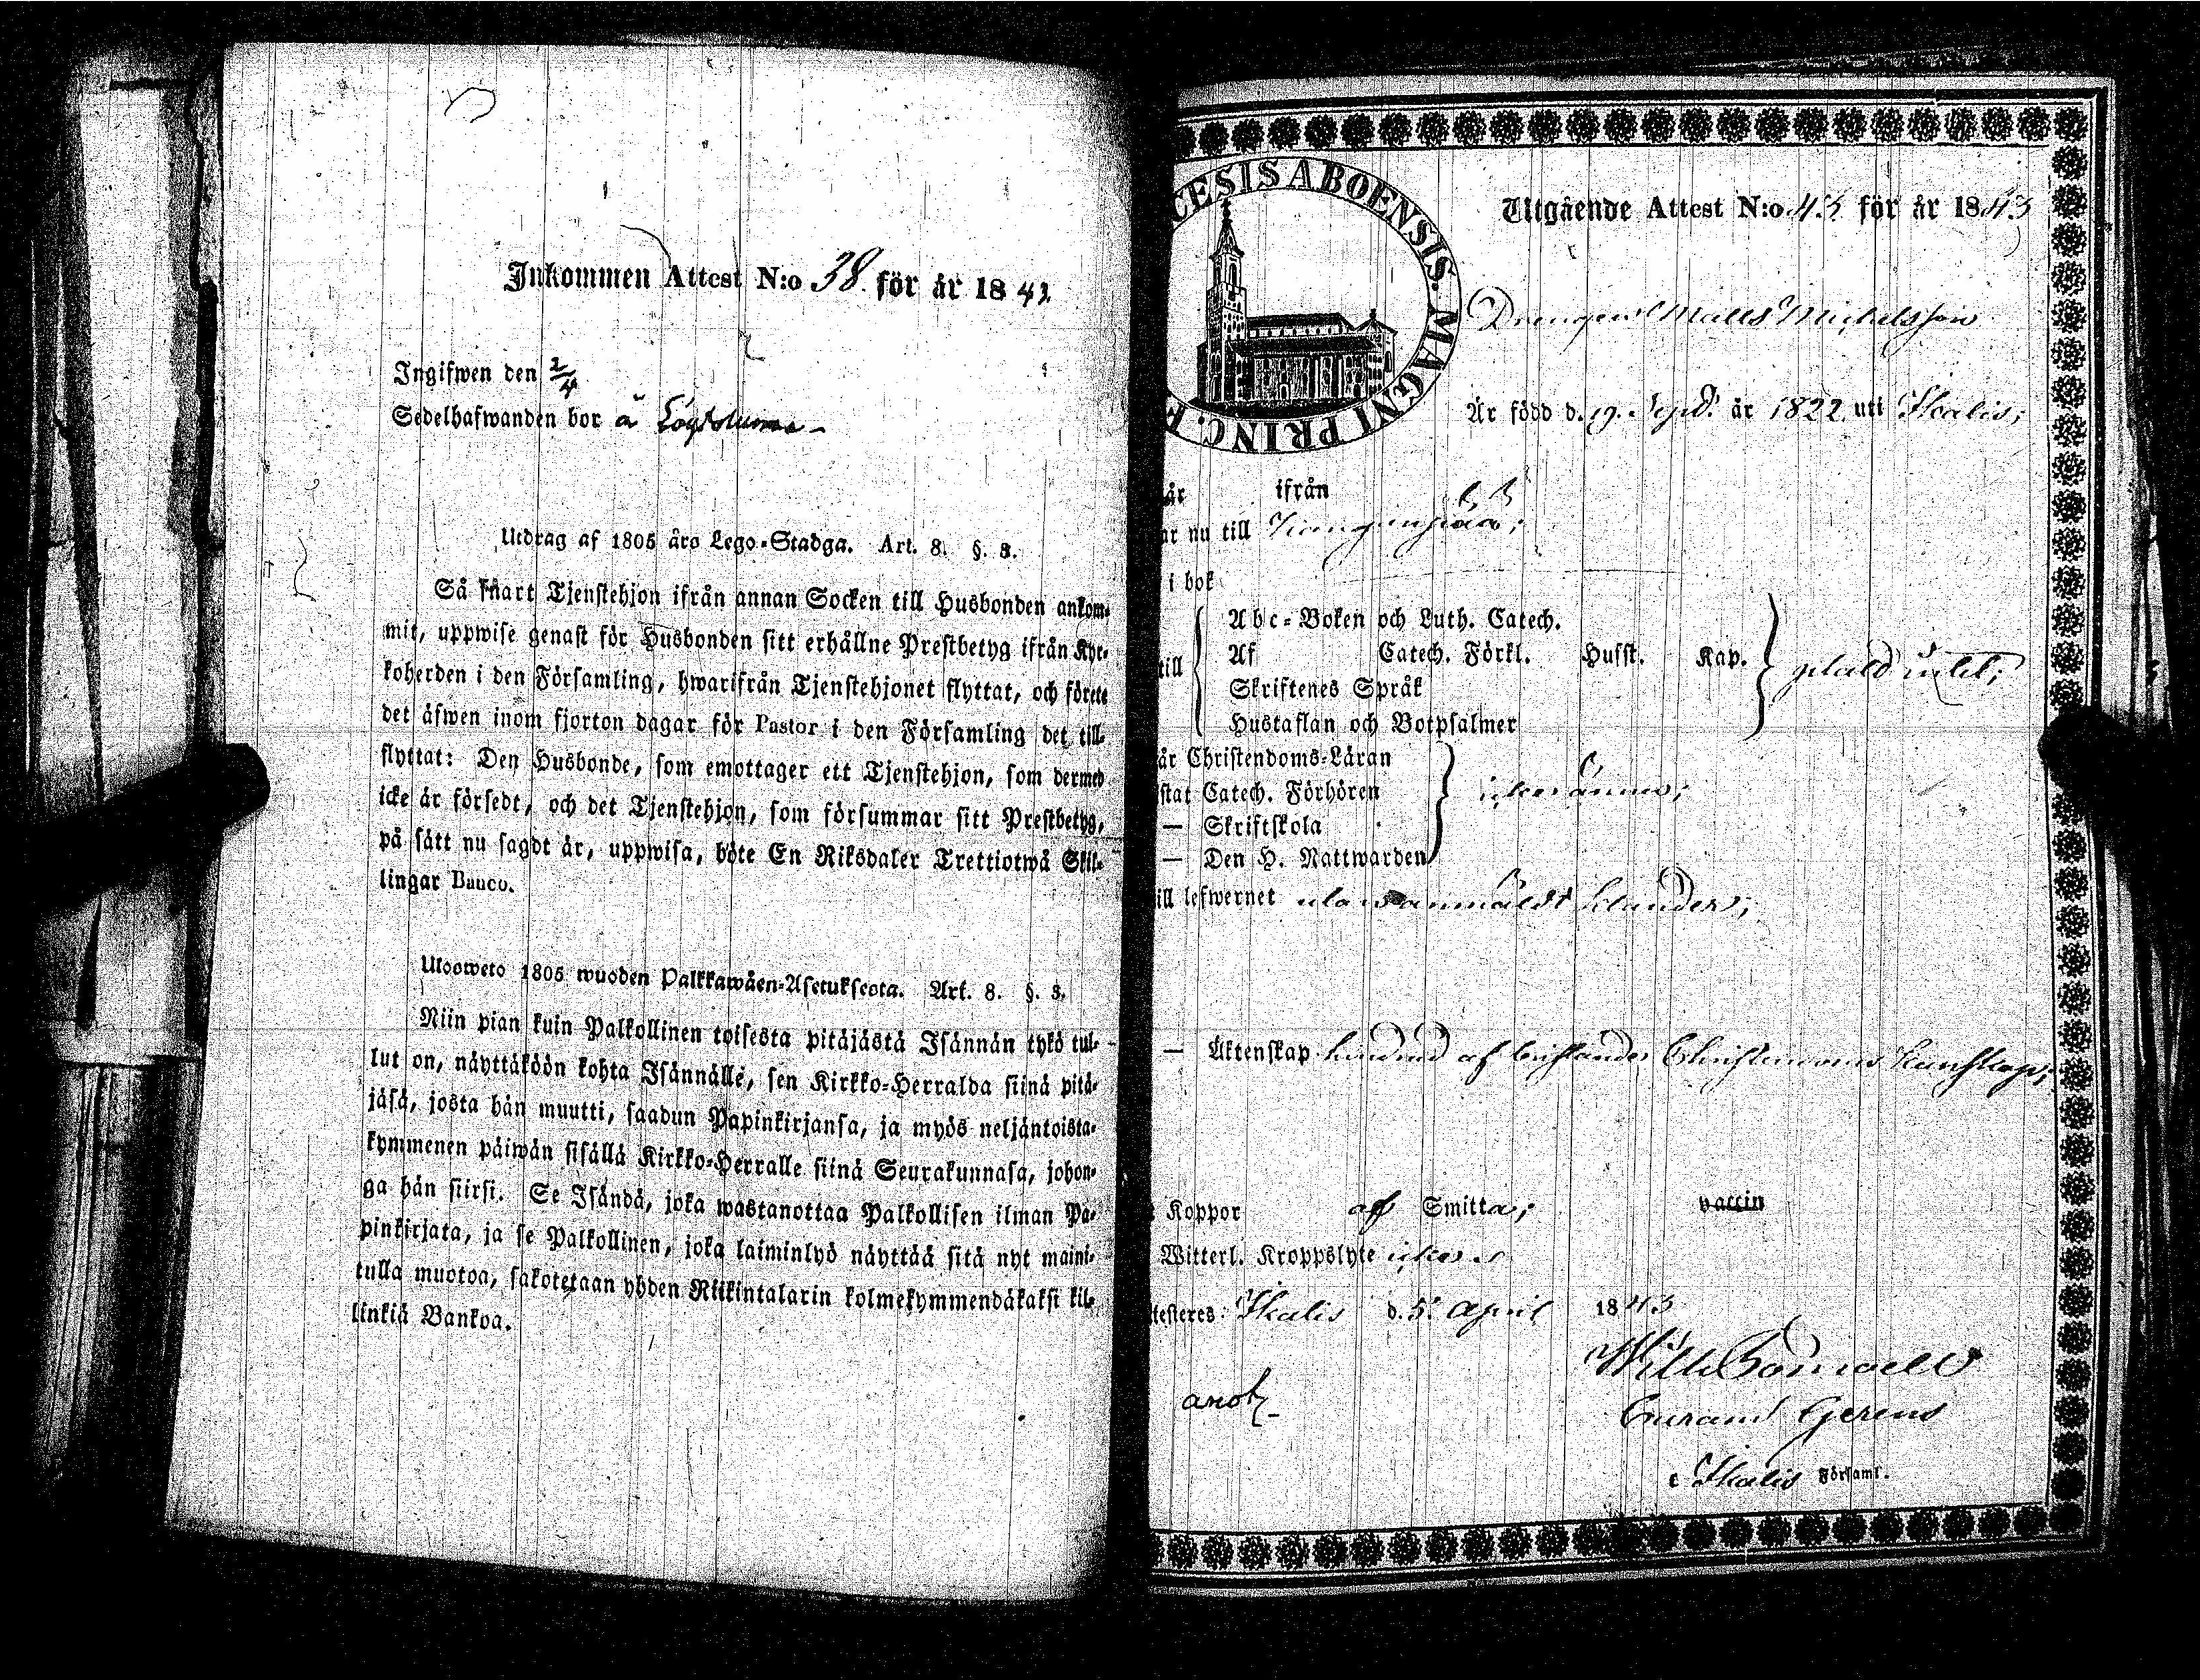 Inkommen Attest N:o 38 för år 1842
Ingifwen den 2/4
Sedelhafwanden bor å
Utdrag af 1805 års Lego-Stadga. Art. 8. §. 3.
Så snart Tjenstehjon ifrån annan Socken till Husbonden ankom-
mit, uppwise genast för Husbonden sitt erhållne Prestbetyg ifrån Kyr-
koherden i den Församling, hwarifrån Tjenstehjonet flyttat, och förete
det äfwen inom fjorton dagar för Pastor i den Församling det till-
flyttat: Den Husbonde, som emottager ett Tjenstehjon, som dermed
icke är försedt, och det Tjenstehjon, som försummar sitt Prestbetyg,
på sätt nu sagdt är, uppwisa, böte En Riksdaler Trettiotwå Skil-
lingar Banco.
Ulosweto 1805 wuoden Palkkawäen-Asetuksesta. Art. 8. §. 3.
Niin pian kuin Palkollinen toisesta pitäjästä Isännän tykö tul-
lut on, näyttäköön kohta Isännälle, sen Kirkko-Herralda siinä pitä-
jäsä, josta hän muutti, saadun Papinkirjansa, ja myös neljäntoista-
kymmenen päiwän sisällä Kirkko-Herralle siinä Seurakunnasa, johon-
ga hän siirsi. Se Isändä, joka wastanottaa Palkollisen ilman Pa-
pinkirjata, ja se Palkollinen, joka laiminlyö näyttää sitä nyt maini-
tulla muotoa, sakotetaan yhden Riikintalarin kolmekymmendäkaksi kil-
linkiä Bankoa.
CESIS ABOENSIS. MAGNI PRINC. F
Utgående Attest N:o 43 för år 1843
Drengen Matts Michelsson
Är född d. 19. Sept. år 1822 uti Ikalis;
år ifrån
ar nu till
i bok
till
Abc-Boken och Luth. Catech.
Af Catech. Förkl. Husst. Kap.
Skriftenes Språk
Hustaflan och Botpsalmer
år Christendoms-Läran
stat Catech. Förhören
— Skriftskola
— Den H. Nattwarden
icke ännu;
ill lefwernet utan anmäldt klander;
— Äktenskap hindrad af bristande Christendoms kunskap;
Koppor af Smitta; vaccin
Witterl. Kroppslyte icke
testeres Ikalis d. 5. April 1843
Gerens
i Ikalis Församl.